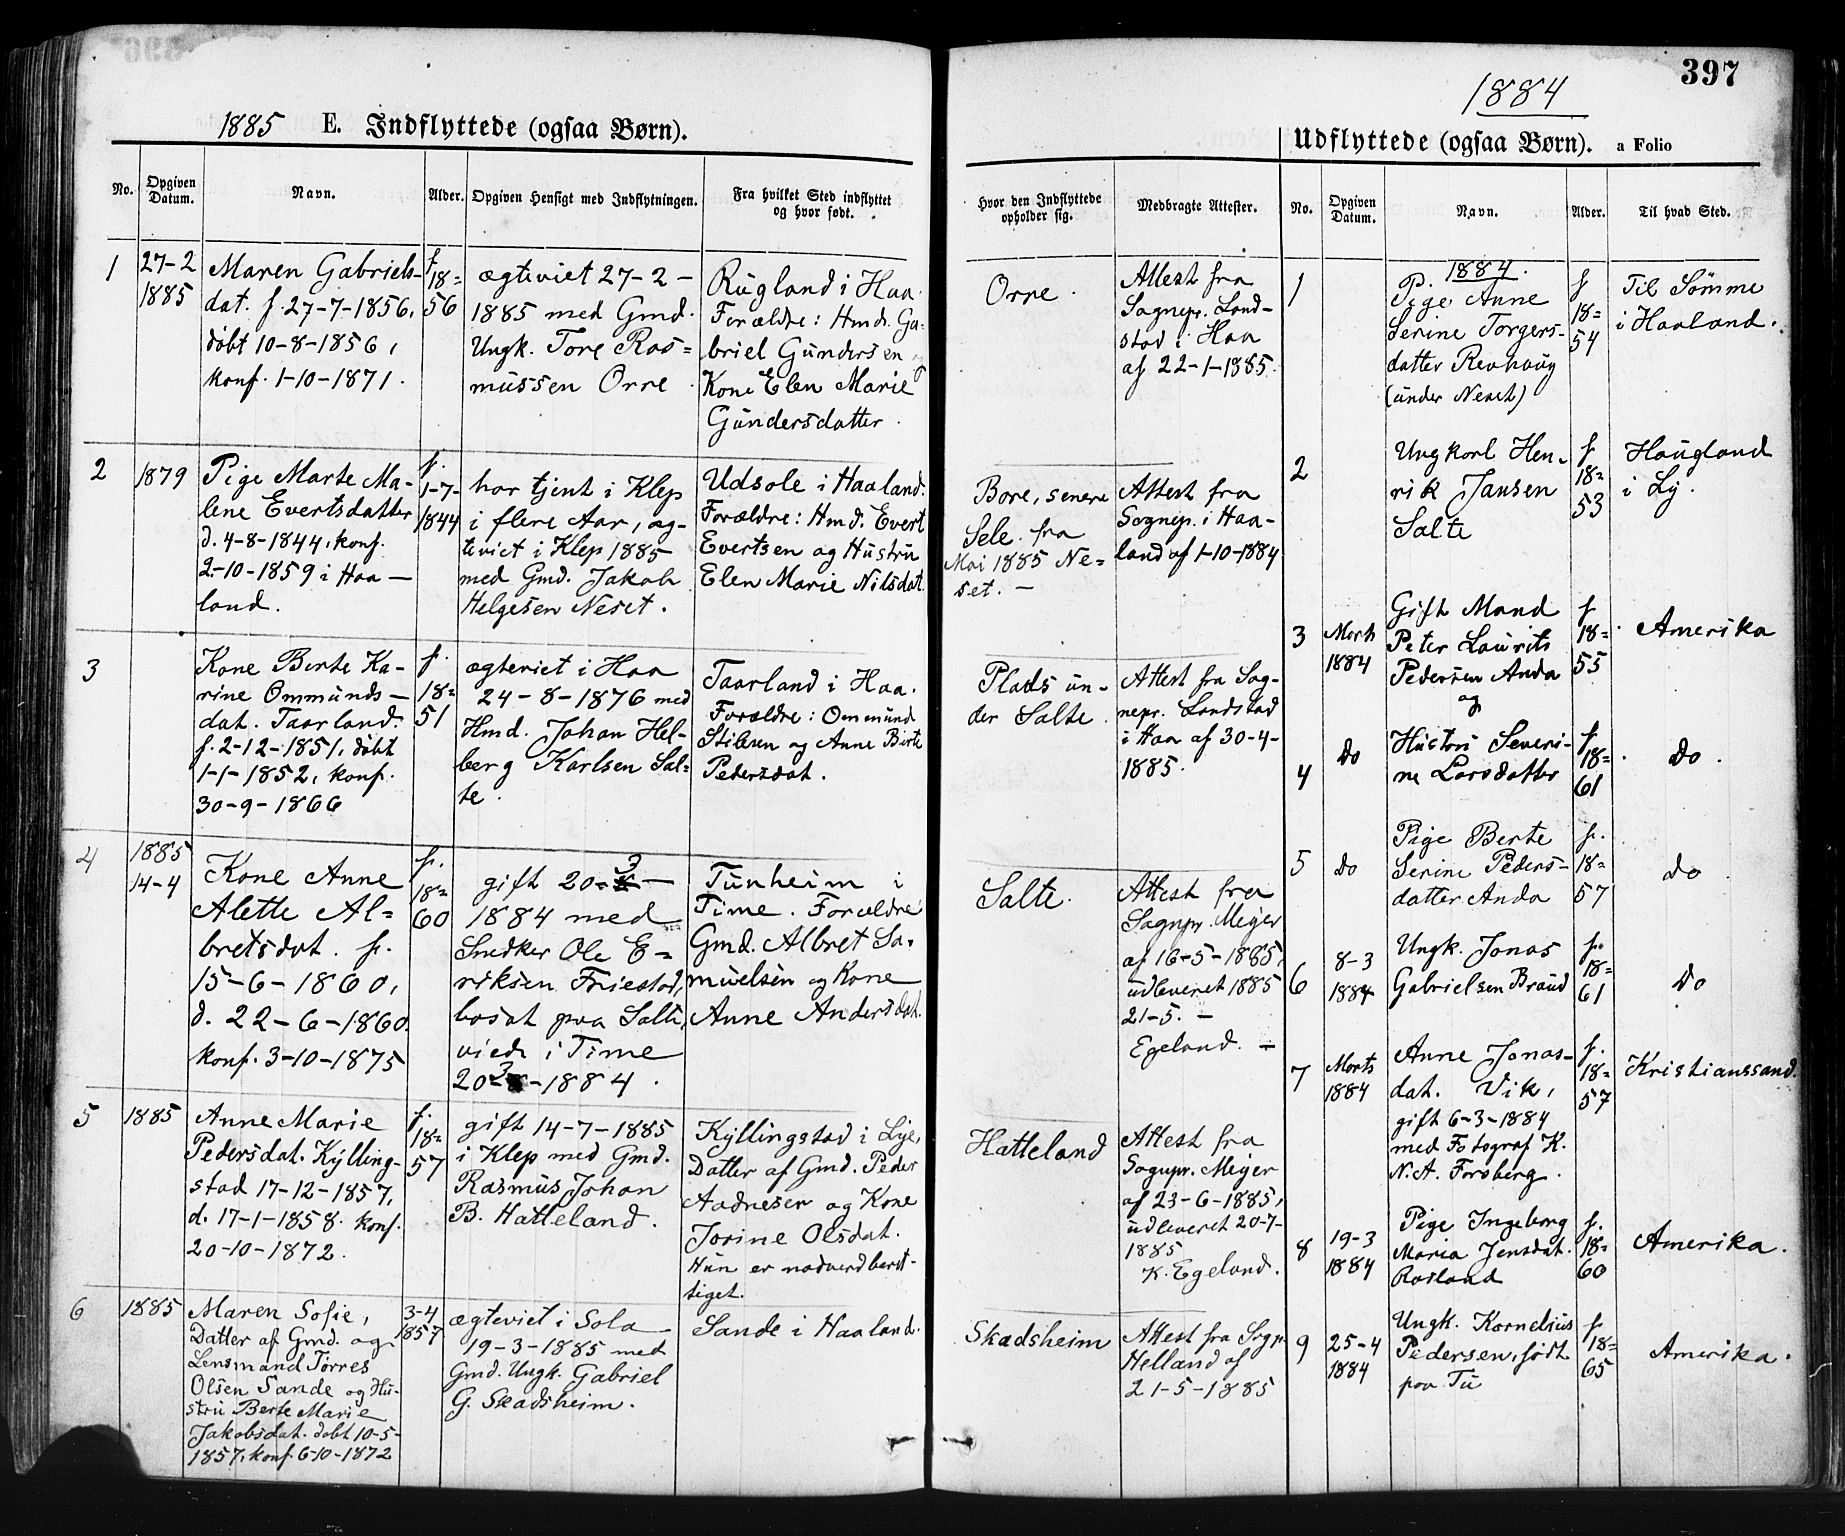 397
1884
1885 E. Indflyttede (ogsaa Børn).
Udflyttede (ogsaa Børn). a Folio
No.
Opgiven
Datum.
Navn.
Alder.
Opgiven Hensigt med Indflytningen.
Fra hvilket Sted indflyttet
og hvor født.
Hvor den Indflyttede
opholder sig.
Medbragte Attester.
No.
Opgiven
Datum.
Navn.
Alder.
Til hvad Sted.
1
27-2
1885
Maren Gabriels-
dat. f. 27-7-1856,
døbt 10-8-1856,
konf. 1-10-1871.
f.
18=
56
ægteviet 27-2-
1885 med Gmd.
Ungk. Tore Ras=
mussen Orre.
Rugland i Haa.
Forældre: Hmd. Ga-
briel Gundersen og
Kone Elen Marie
Gundersdatter.
Orre.
Attest fra
Sognepr. Land-
stad i Haa
af 22-1-1885.
2
1879
Pige Marte Ma-
lene Evertsdatter
d. 4-8-1844, konf.
2-10-1859 i Haa-
land.
f.
1-7-
1844
har tjent i Klep
i flere Aar, æg-
teviet i Klep 1885
med Gmd. Jakob
Helgesen Neset.
Udsole i Haaland.
Forældre: Hmd. Evert
Evertsen og Hustru
Elen Marie Nilsdat.
Bore, senere
Sele. fra
Mai 1885 Ne=
set. -
Attest fra
Sognep. i Haa-
land af 1-10-1884
3
Kone Berte Ka-
rine Ommunds-
dat. Taarland.
f. 2-12-1851, døbt
1-1-1852, konf.
30-9-1866
f.
18=
51
ægteviet i Haa
24-8-1876 med
Hmd. Johan Hel-
berg Karlsen Sal=
te.
Taarland i Haa.
Forældre: Ommund
Stilesen og Anne Birte
Pedersdat.
Plads un-
der Salte.
Attest fra Sog-
nepr. Landstad
i Haa af 30-4-
1885.
4
1885
14-4
Kone Anne
Alette Al=
bretsdat. f.
15-6-1860,
d. 22-6-1860.
konf. 3-10-1875
f.
18=
60
gift 20-3-
1884 med
Snedker Ole E=
riksen Friestad,
bosat paa Salte,
viede i Time
20-3-1884.
Tunheim i
Time. Forældre
Gmd. Albret Sa-
muelsen og Kone
Anne Andersdat.
Salte.
Attest fra
Sognpr. Meyer
af 16-5-1885,
udleveret 1885
21-5. -
Egeland. -
5
1885
Anne Marie
Pedersdat. Kylling-
stad 17-12-1857,
d. 17-1-1858. konf.
20-10-1872.
f.
18=
57
gift 14-7-1885
i Klep med Gmd.
Rasmus Johan
B. Hatteland.
Kyllingstad i Lye,
Datter af Gmd. Peder
Aadnesen og Kone
Jorine Olsdat.
Hun er nadverdberet-
tiget.
Hatteland
Attest fra
Sognpr. Meyer
af 23-6-1885,
udleveret 20-7-
1885
K. Egeland.
6
1885
Maren Sofie,
Datter af Gmd. og
Lensmand Tørres
Olsen Sande og Hu-
stru Berte Marie
Jakobsdat. døbt 10-5-
1857, konf. 6-10-1872
3-4
1857
ægteviet i Sola
19-3-1885 med
Gmd. Ungk. Gabriel
G. Skadsheim.
Sande i Haaland.
Skadsheim
Attest fra Sogp.
Helland af
21-5-1885
1
1884.
P.
Pige Anne
Serine Torgers-
datter Revhaug
(under Neset)
f
18=
54
Til Sømme
i Haaland.
2
Ungkarl Hen-
rik Jansen
Salte
f
18=
53
Haugland
i Ly.
3
Marts
1884
Gift Mand
Peter Laurits
Pedersen Anda
og
f
18=
55
Amerika
4
do
Hustru Severi-
ne Larsdatter
f
18=
61
do.
5
do
Pige Berte
Serine Peders-
datter Anda
f.
18=
57
do
6
8-3
1884
Ungk. Jonas
Gabrielsen Braud
f.
18=
61
do
7
Marts
1884
Anne Jonas-
dat. Vik,
gift 6-3-1884
med Fotograf K.
N. A. Forsberg.
f.
18=
57
Kristianssand.
8
19-3
1884
Pige Ingeborg
Maria Jensdat.
Rosland
f.
18=
60
Amerika.
9
25-4
1884
Ungk. Kornelius
Pedersen, født
paa Tu
f
18=
65
Amerika.